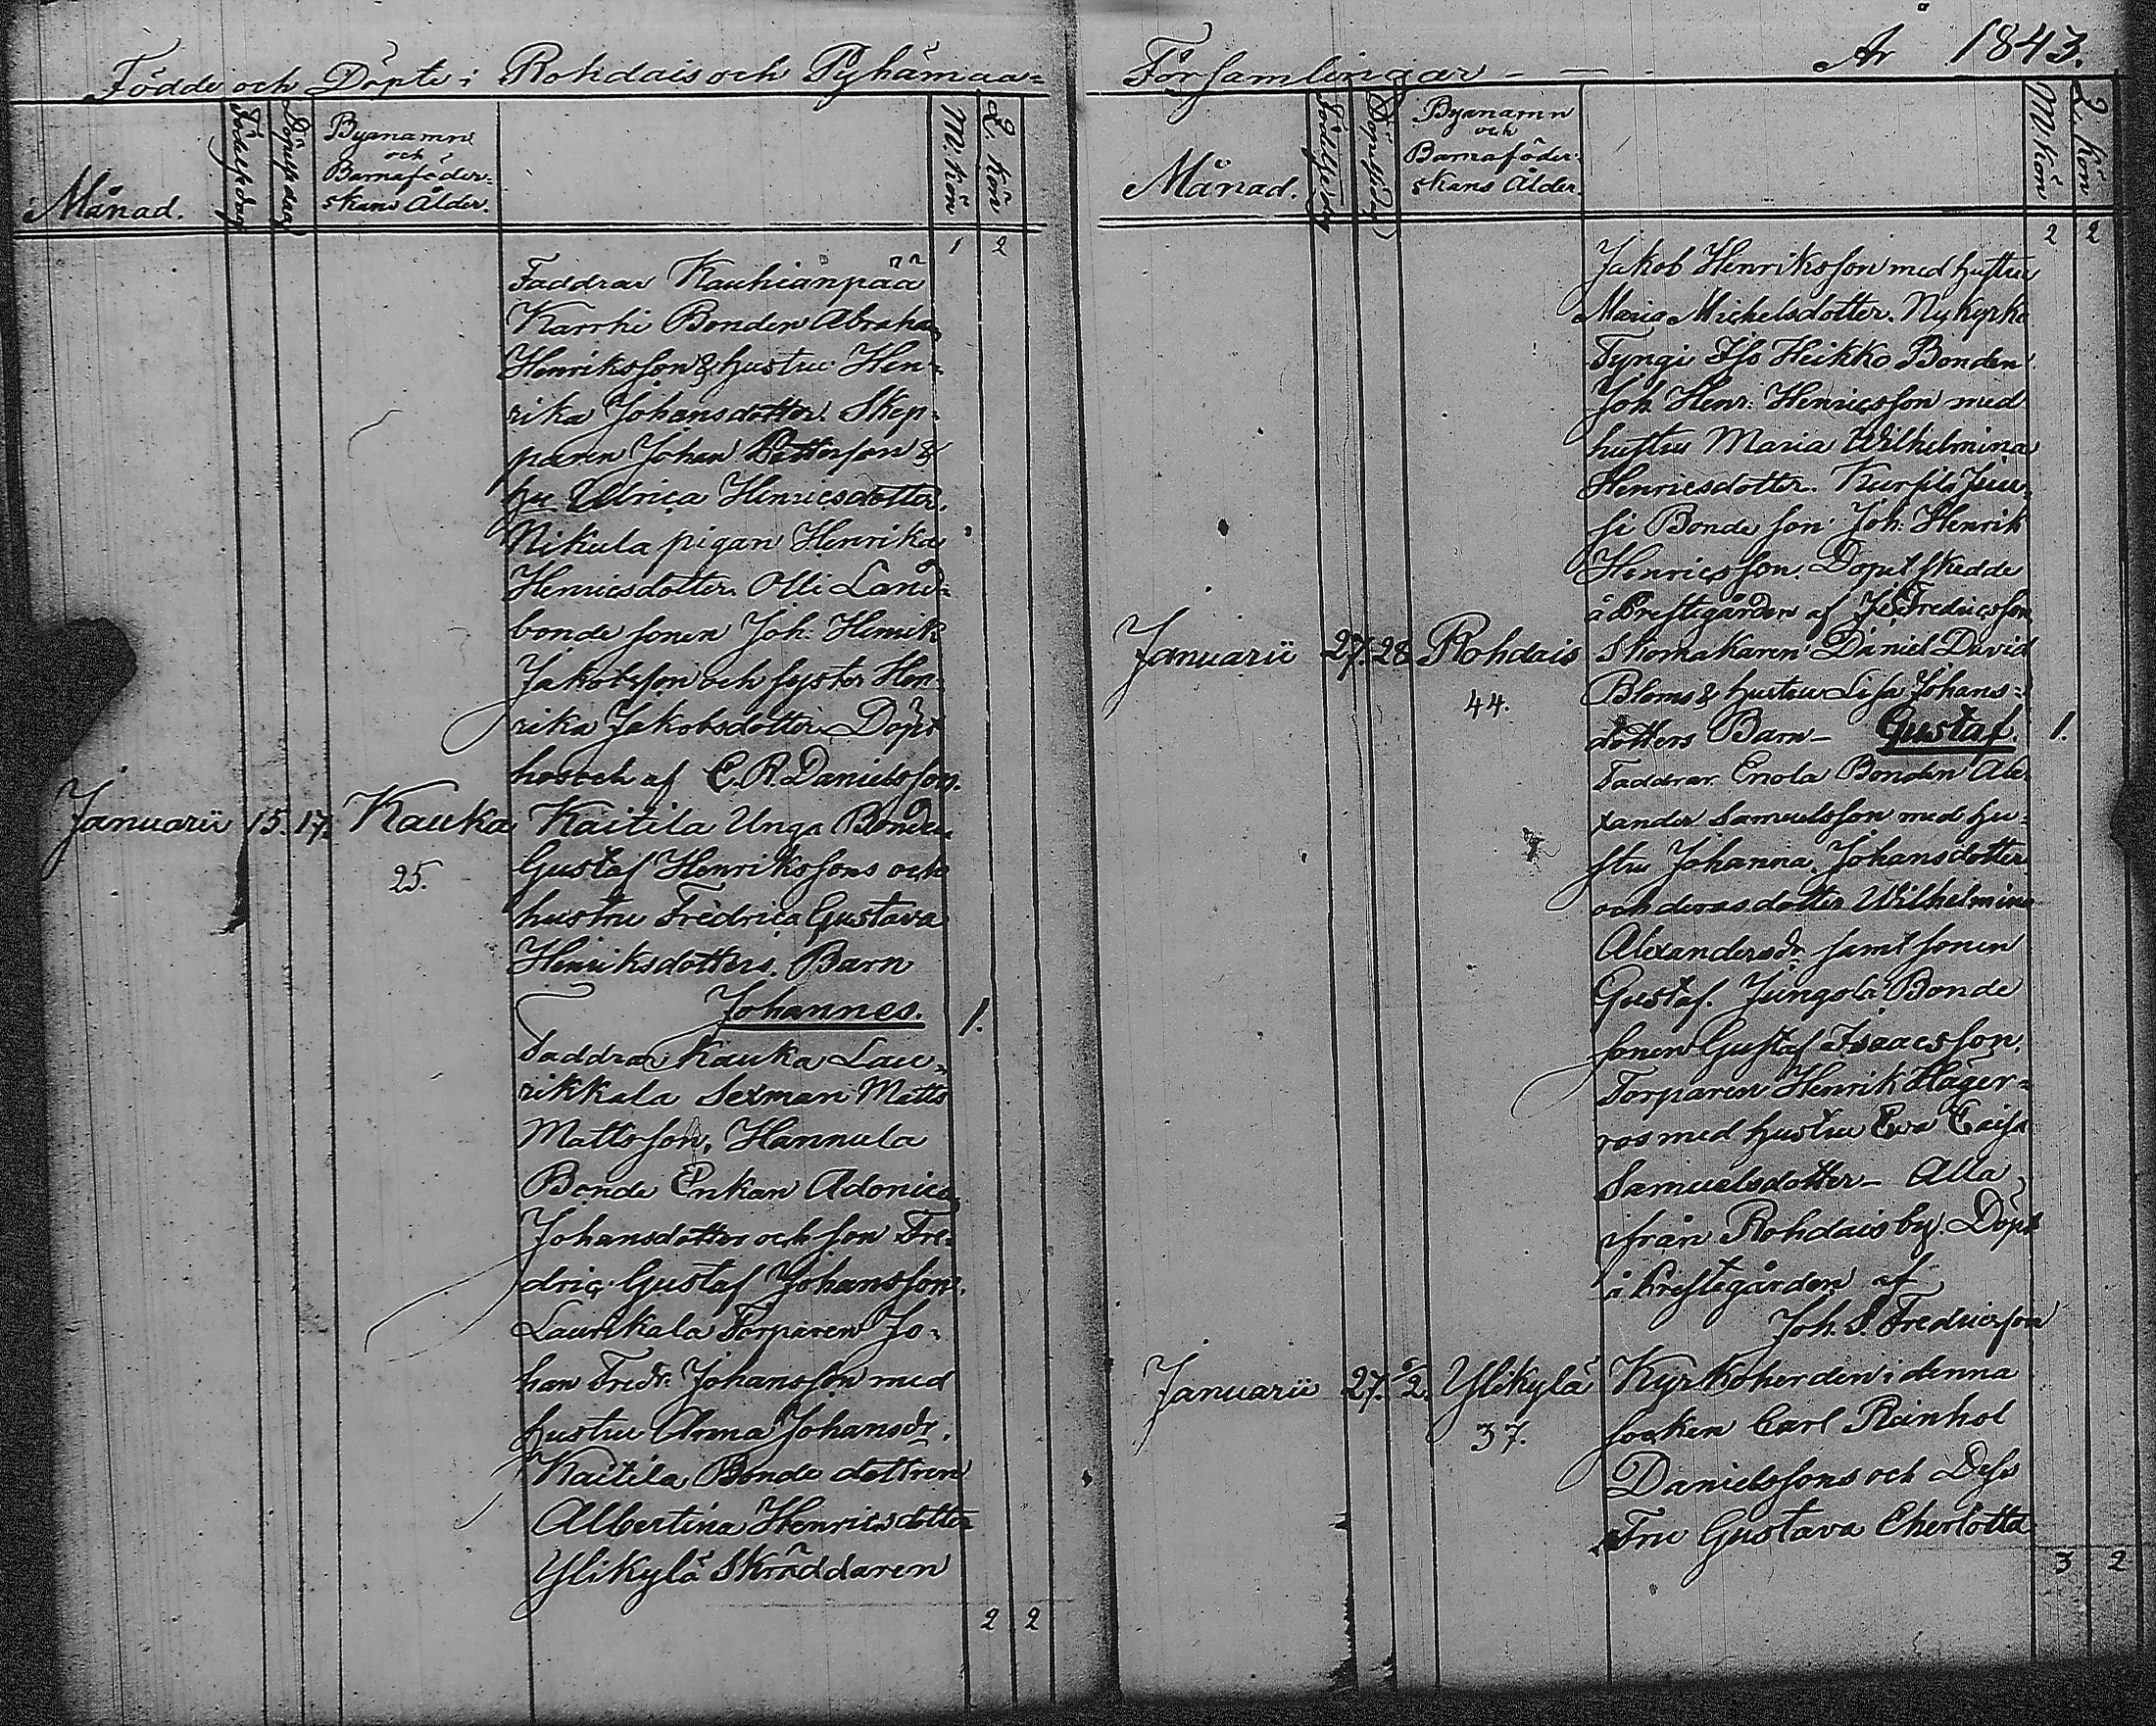 Födde och Döpte i Rohdais och Pyhämaa=
Månad.
Födelsedag
Döpelsedag
Byanamn
och
Barnaföder=
skans Ålder.
M. Kön
Q. Kön
1 2
Faddrar Kauhianpää
Karrhi Bonden Abraha
Henriksson & hustru Hen=
rika Johansdotter. Skep=
paren Johan Pettersson &
hu Ulrica Henricsdotter.
Nikula pigan Henrika
Henricsdotter. Olli Land=
bonde sonen Joh: Henrik
Jakobsson och syster Hen=
rika Jakobsdotter. Döpt
hos och af C. R. Danielsson.
Januarii 15. 17. Kauka Kaitila Unga Bonden
25. Gustaf Henrikssons och
hustru Fredrica Gustava
Henriksdotters. Barn
Johannes. 1.
Faddrar Kauka Lau=
rikkala Sexman Matts
Mattsson, Hannula
Bonde Enkan Adonica
Johansdotter och son Fre=
dric Gustaf Johansson.
Laurikala Torparen Jo=
han Fredr: Johansson med
hustru Anna Johansdr.
Kaitila Bonde dottren
Albertina Henricsdotter
Ylikylä Skräddaren
2 2
Församlingar - År 1843.
Månad.
Födelsedag
Döpelsedag
Byanamn
och
Barnaföder=
skans Ålder.
M. Kön
Q. Kön
2 2
Jakob Henriksson med hustru
Maria Michelsdotter. Nykyrko
Tyngi Iso Heikko Bonden
Joh. Henr: Henricsson med
hustru Maria Wilhelmina
Henricsdotter.
si Bonde son Joh: Henrik
Henricsson. Dopet skedde
å Prestegården af Fredricsson
Januarii 27. 28. Rohdais Skomakaren Daniel David
44. Bloms & hustru Lisa Johans=
dotters Barn - Gustaf. 1.
Faddrar Enola Bonden Ale
xander Samuelsson med hu=
stru Johanna Johansdotter
och deras dotter Wilhelmina
Alexandersdr samt sonen
Gustaf. Jungola Bonde
sonen Gustaf Isaacsson.
Torparen Henrik Häger=
ros med hustru Eva Caisa
Samuelsdotter - Alla
ifrån Rohdais by. Döpt
å Prestegården af
Joh. S. Fredricsson
Januarii 27. 6/2. Ylikylä Kyrkoherden i denna
37. socken Carl Reinhol
Danielssons och Dess
Fru Gustava Cherlotta
3 2